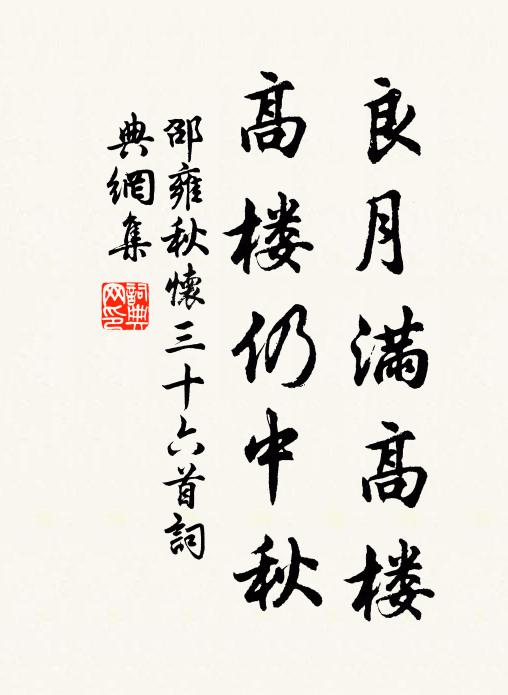 良月滿高楼
高楼仍中秋
邵雍秋懷三十六首詞
典網集
詞典网印